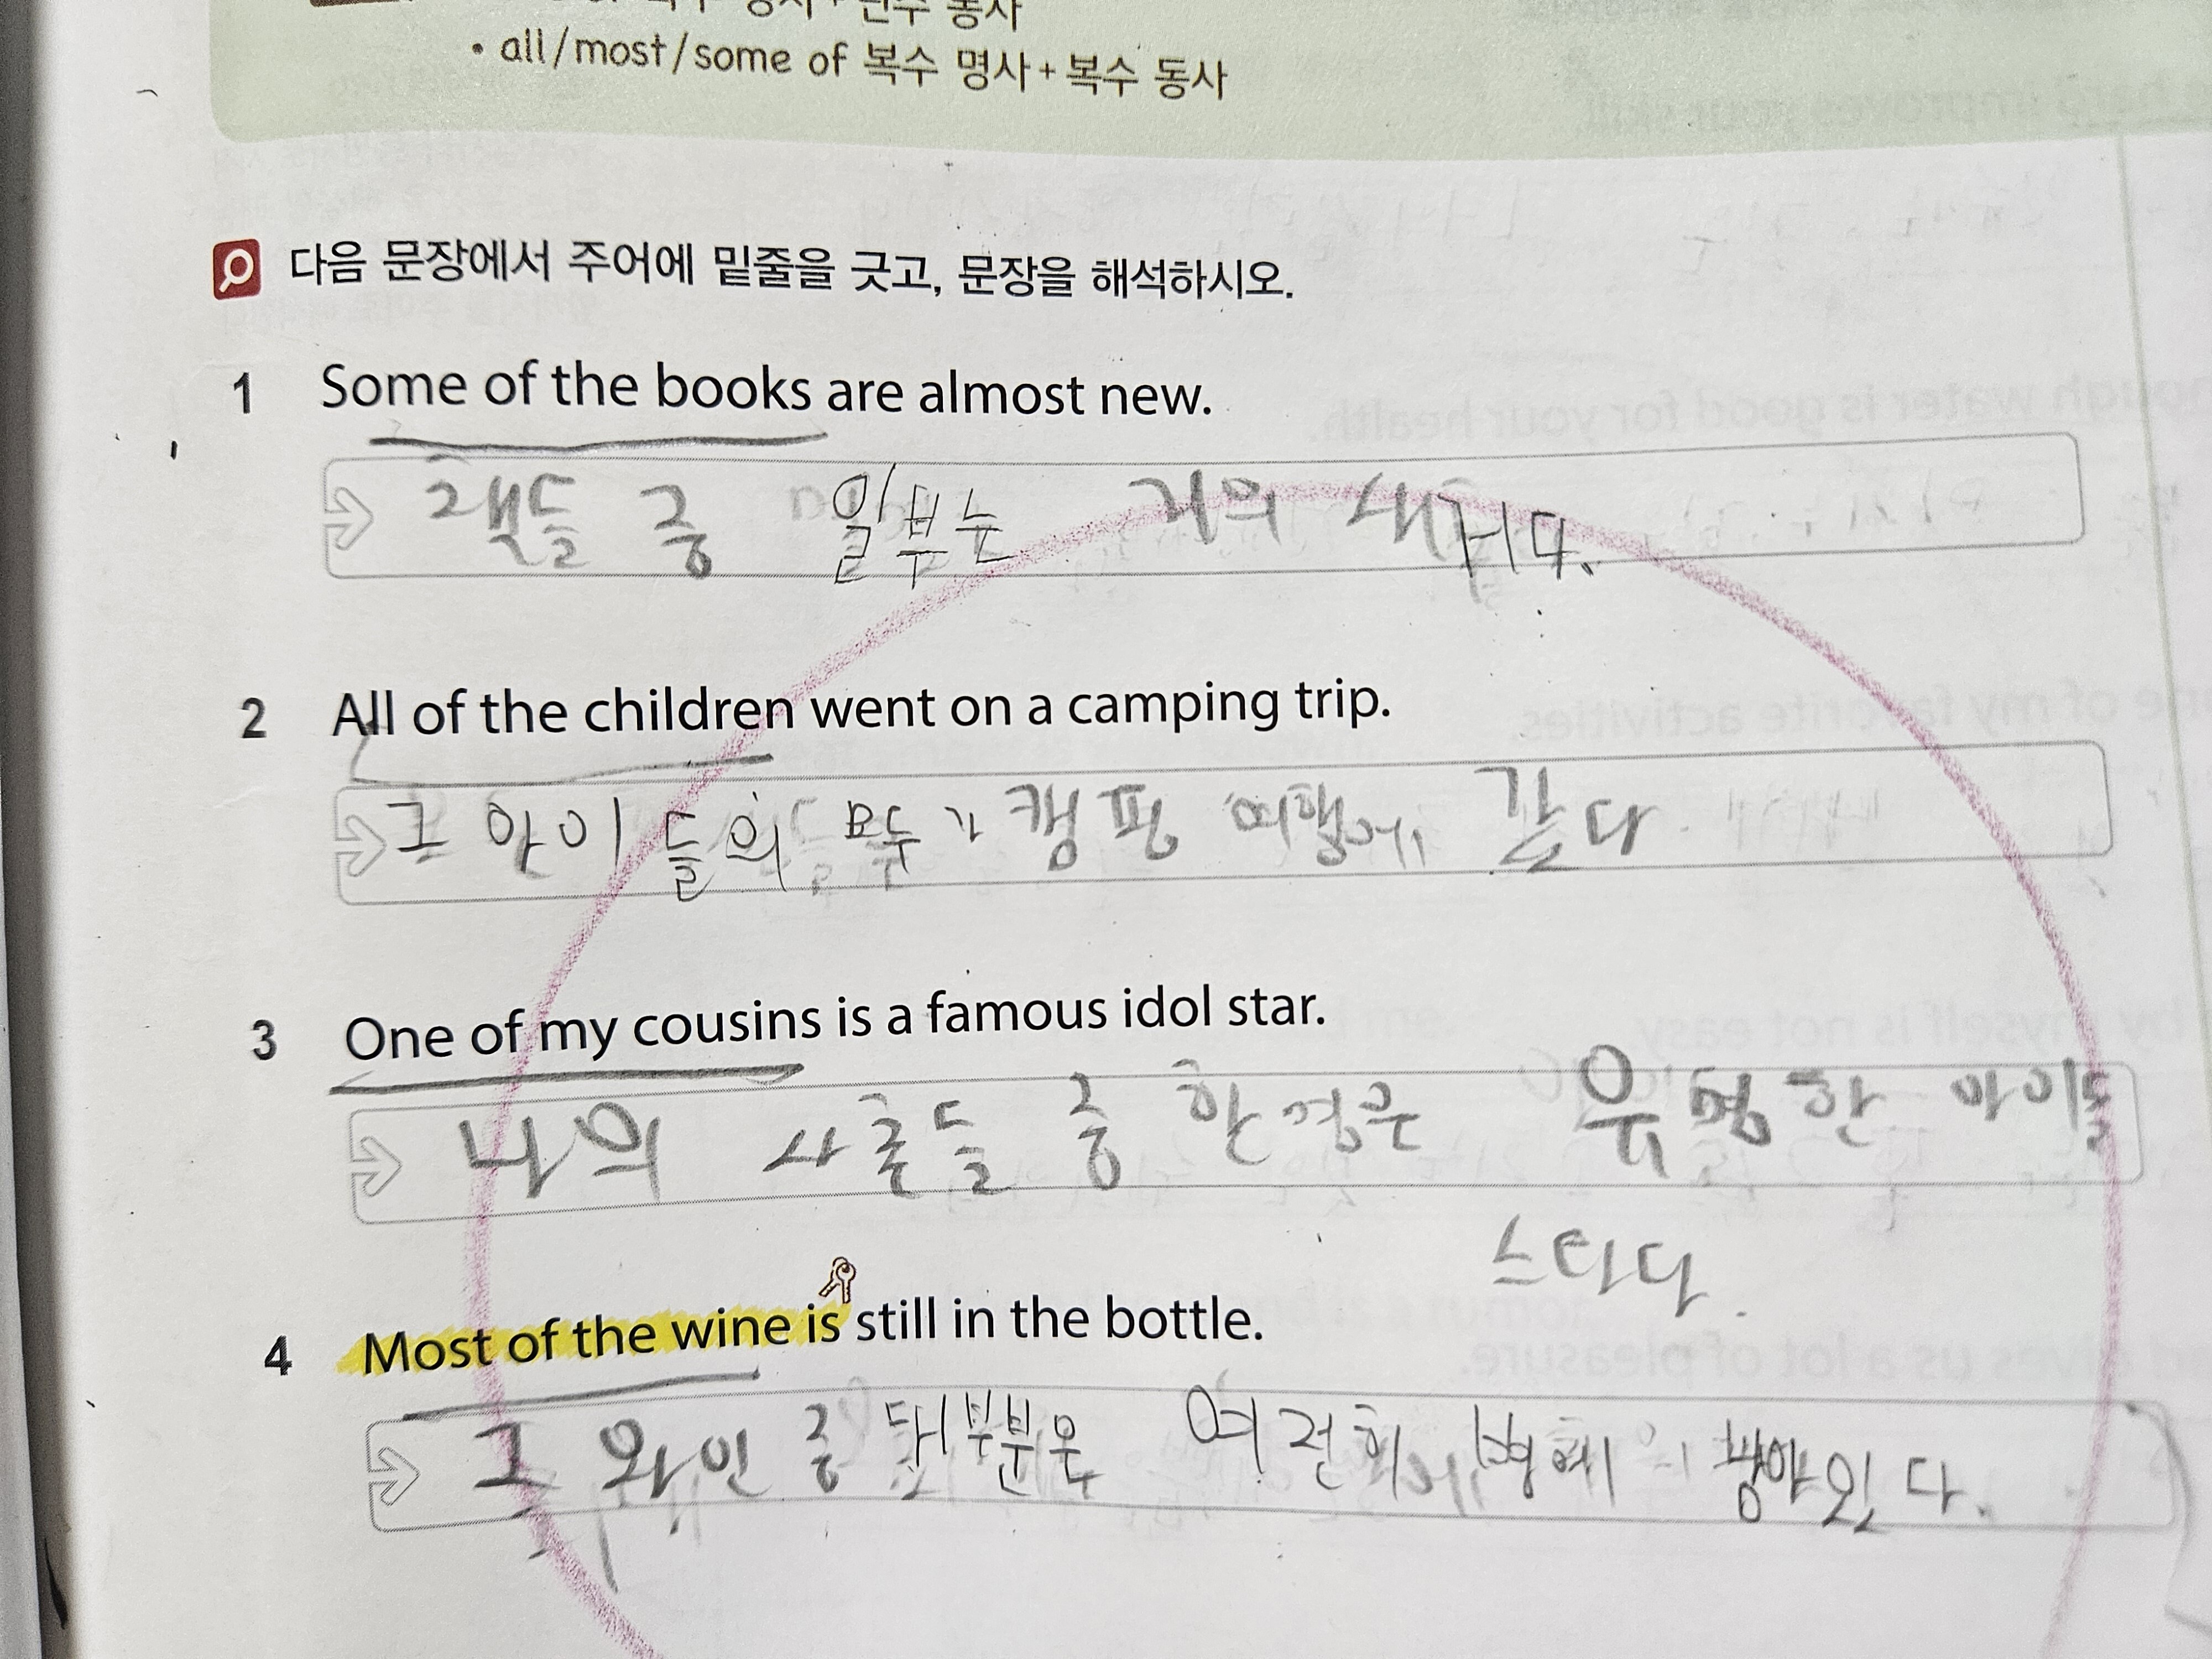 복수 명사 + 단수 동사
• all/most/some of 복수 명사 + 복수 동사
다음 문장에서 주어에 밑줄을 긋고, 문장을 해석하시오.
1 Some of the books are almost new.
책들 중 일부는 거의 새거다.
2 All of the children went on a camping trip.
그 아이들의 모두가 캠핑 여행에 갔다
3 One of my cousins is a famous idol star.
나의 사촌들 중 한명은 유명한 아이돌
스타다.
4 Most of the wine is still in the bottle.
그 와인 중 대부분은 여전히 병에 있다.